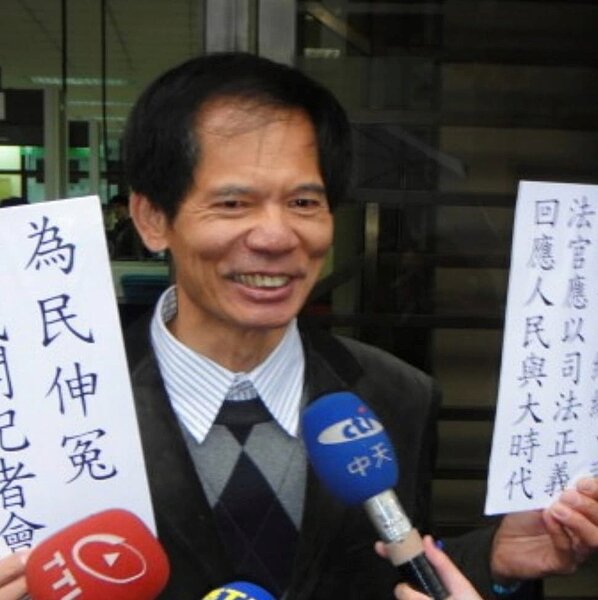 為民伸冤
聞記者會
法官應以司法正義
回應人民與大時代
中天
TTV